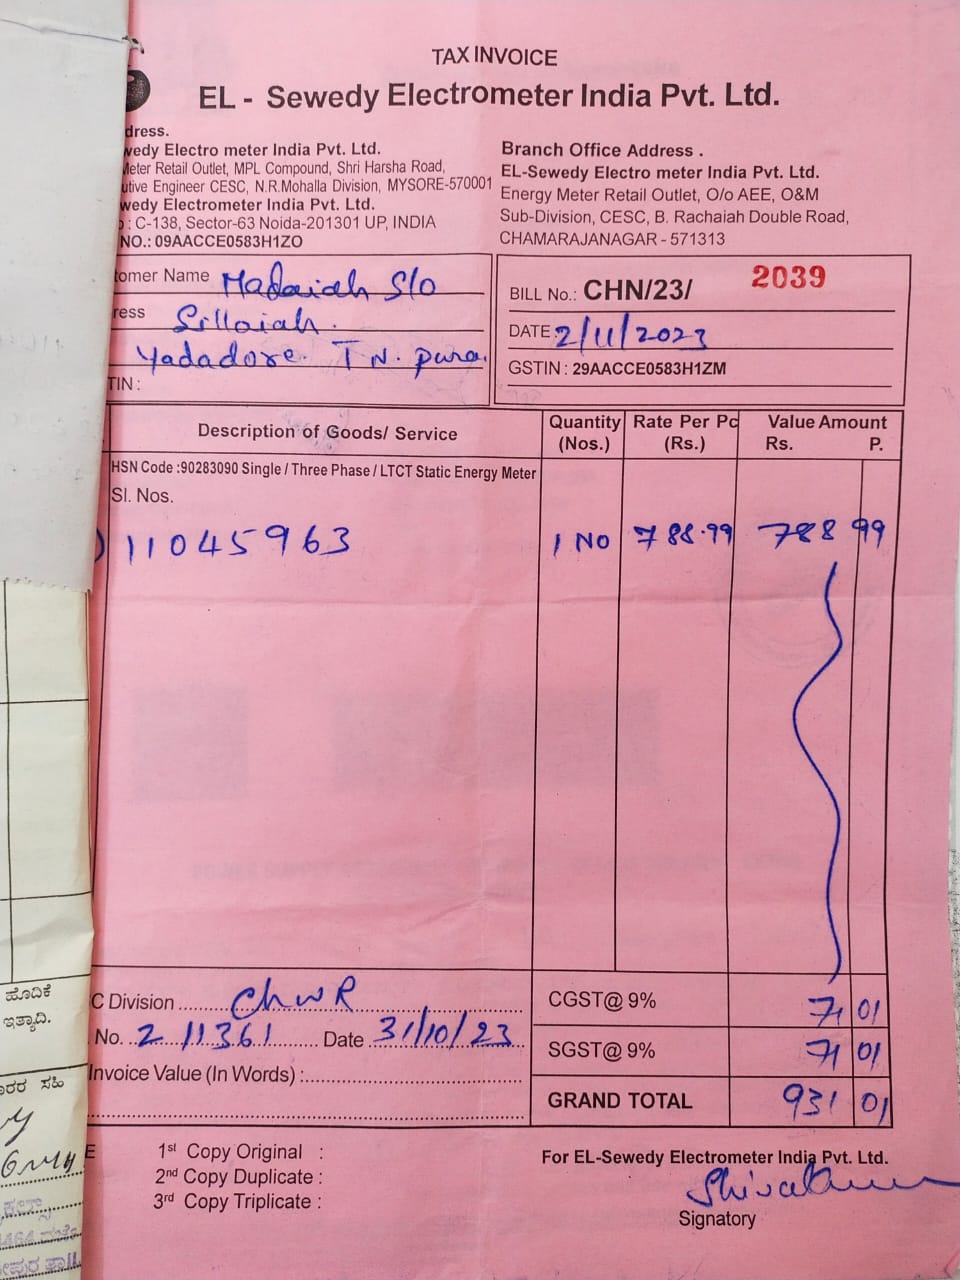 TAX INVOICE
EL - Sewedy Electrometer India Pvt. Ltd.
dress.
wedy Electro meter India Pvt. Ltd.
Meter Retail Outlet, MPL Compound, Shri Harsha Road,
utive Engineer CESC, N.R.Mohalla Division, MYSORE-570001
wedy Electrometer India Pvt. Ltd.
: C-138, Sector-63 Noida-201301 UP, INDIA
NO.: 09AACCE0583H1ZO
Branch Office Address .
EL-Sewedy Electro meter India Pvt. Ltd.
Energy Meter Retail Outlet, O/o AEE, O&M
Sub-Division, CESC, B. Rachaiah Double Road,
CHAMARAJANAGAR - 571313
tomer Name Madaiah S/o
ress Sillaiah.
Yadadore. T N. pura.
TIN :
BILL No.: CHN/23/ 2039
DATE 2/11/2023
GSTIN : 29AACCE0583H1ZM
Description of Goods/ Service Quantity (Nos.) Rate Per Pc (Rs.) Value Amount Rs. P.
HSN Code :90283090 Single / Three Phase / LTCT Static Energy Meter
Sl. Nos.
) 11045963 1 NO 788.99 788 99
C Division ChNR CGST@ 9% 71 01
No. 211361 Date 31/10/23 SGST@ 9% 71 01
Invoice Value (In Words) :
GRAND TOTAL 931 01
E 1st Copy Original :
2nd Copy Duplicate :
3rd Copy Triplicate :
For EL-Sewedy Electrometer India Pvt. Ltd.
Signatory
ಹೊದಿಕೆ
ಇತ್ಯಾದಿ.
ರರ ಸಹಿ